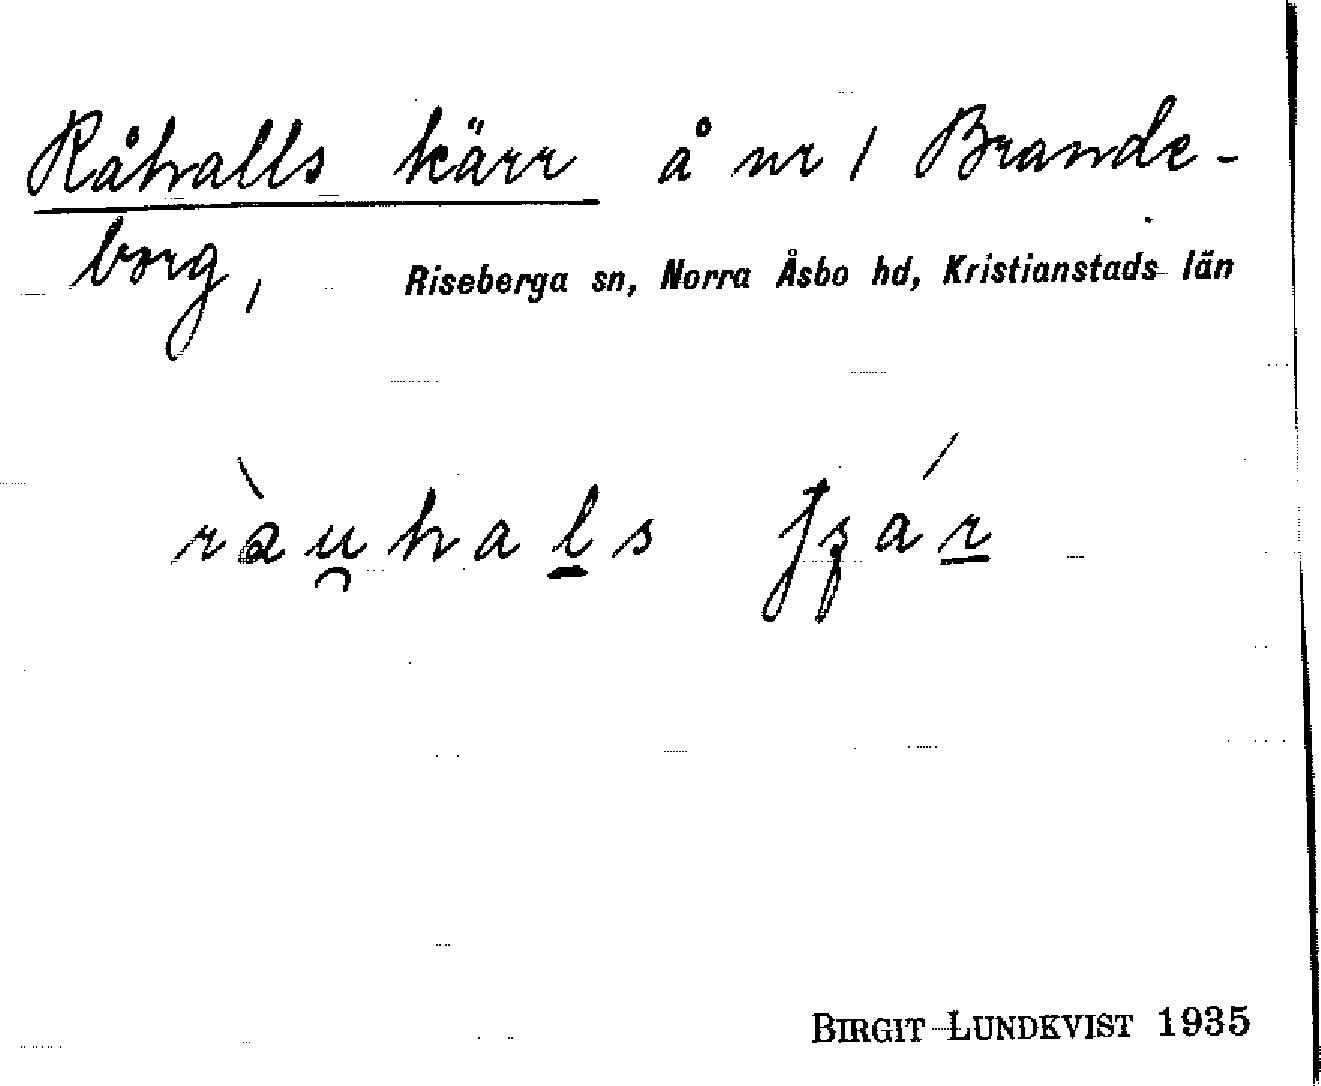 Råhalls kärr å nr 1 Brande-
borg,
Riseberga sn, Norra Åsbo hd, Kristianstads län
BIRGIT LUNDKVIST 1935